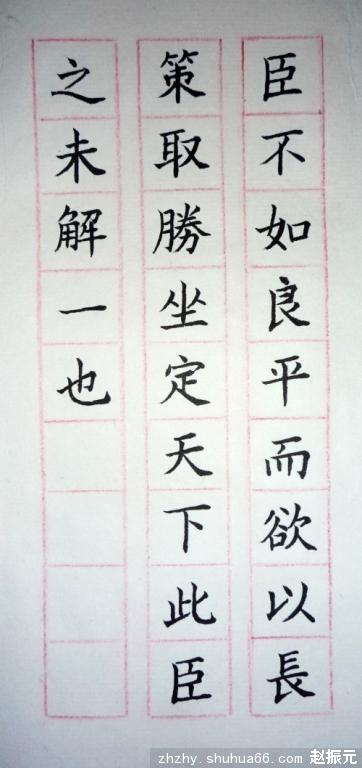 臣不如良平而欲以長
策取勝坐定天下此臣
之未解一也
zhzhy.shuhua66.com 赵振元